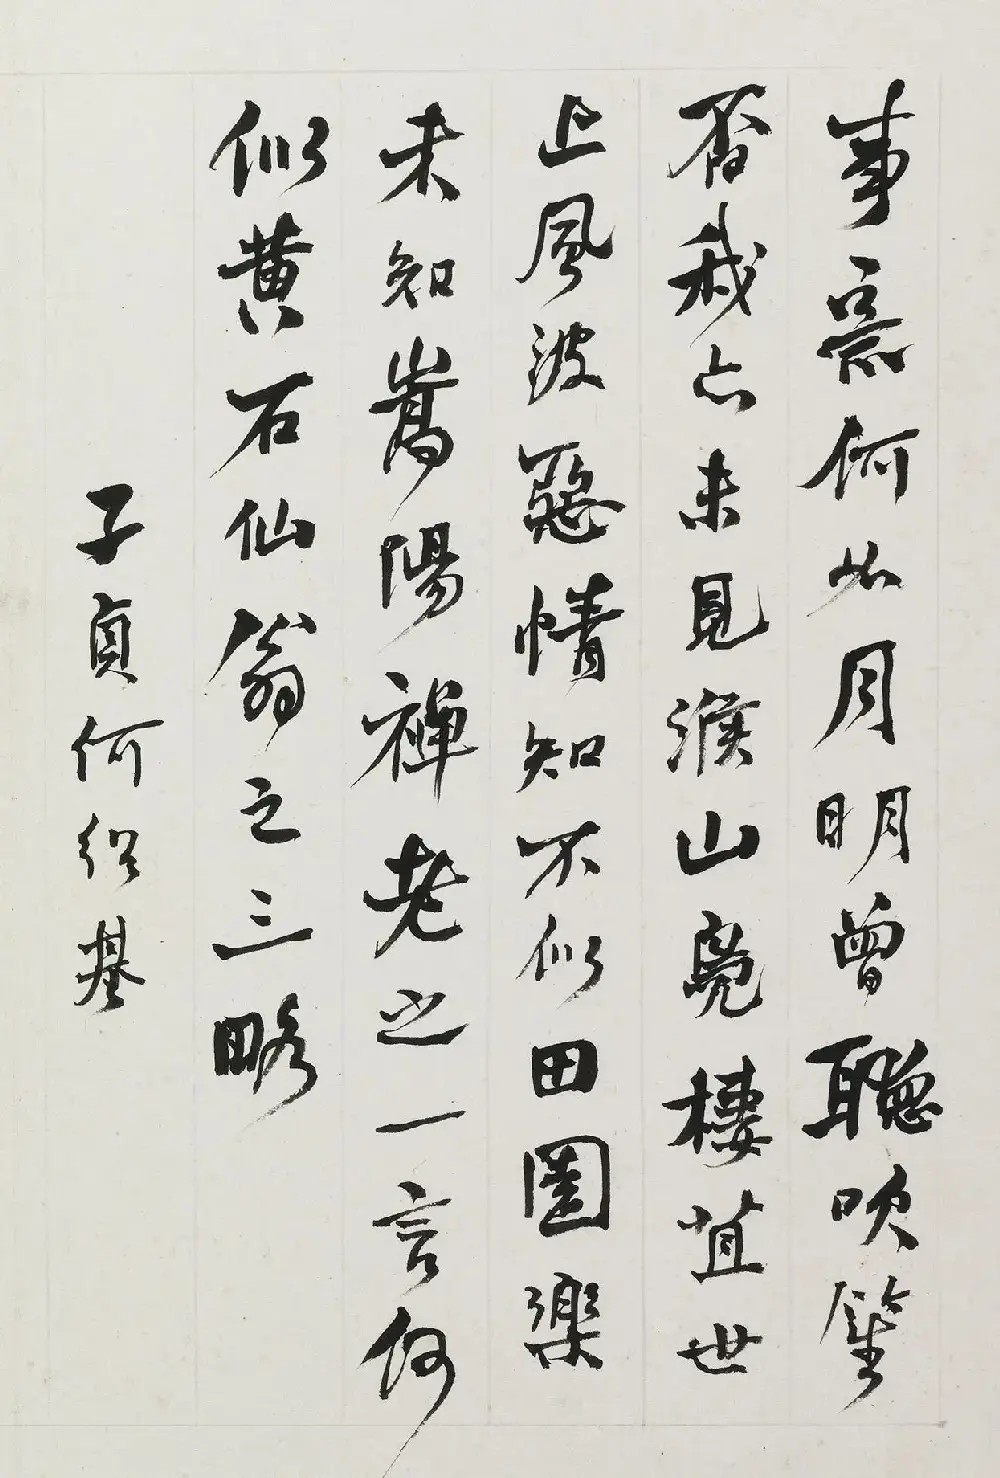 事何如月明曾聽吹笙
否我亦未見緱山鳧棲苴世
上風波惡情知不似田園樂
未知嵩陽禪老之一言何
似黃石仙翁之三略
子貞何紹基